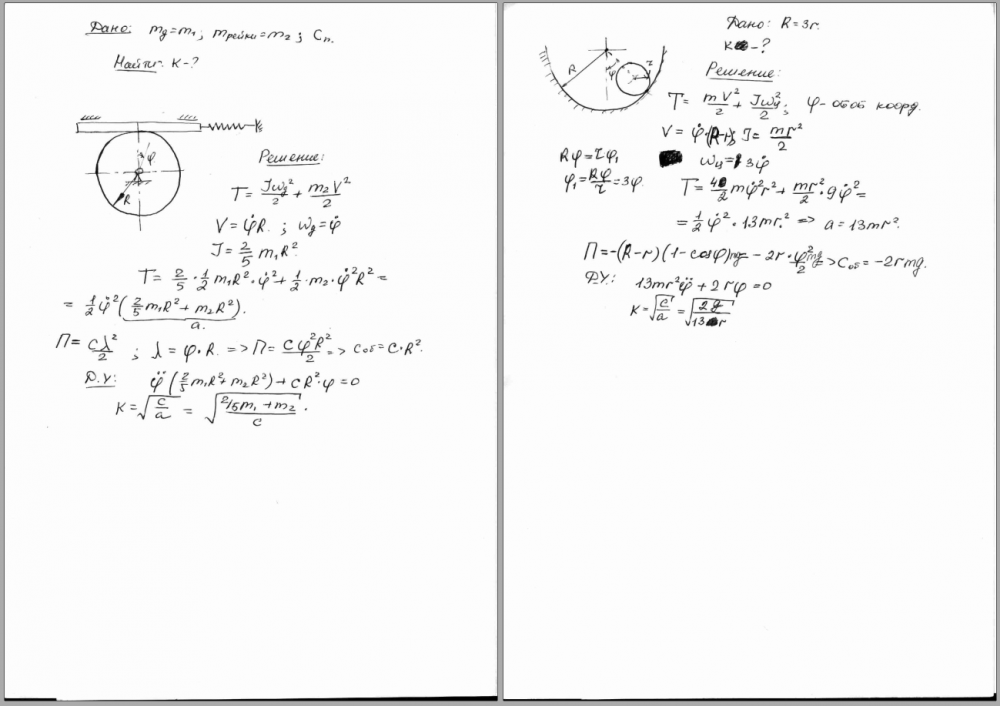 Дано: mд = m₁; mрейки = m₂; Cп.
Найти: K - ?
φ
R
Решение:
T = Jωд²/2 + m₂V²/2
V = φ̇R ; ωд = φ̇
J = 2/5 m₁R².
T = 2/5 · 1/2 m₁R² · φ̇² + 1/2 · m₂ · φ̇²R² =
= 1/2 φ̇² (2/5 m₁R² + m₂R²).
a.
П = cλ²/2 ; λ = φ·R. => П = cφ²R²/2 => Cоб = C·R².
Д.У: φ̈ (2/5 m₁R² + m₂R²) + CR²·φ = 0
K = √(c/a) = √((2/5m₁ + m₂)/c).
Дано: R = 3r.
K - ?
Решение:
R
φ
r
T = mV²/2 + Jωц²/2; φ - обоб коорд.
V = φ̇(R-r); J = mr²/2
Rφ = rφ₁
ωц = 3φ̇
φ₁ = Rφ/r = 3φ.
T = 4/2 mφ̇²r² + mr²/2 · 9φ̇² =
= 1/2 φ̇² · 13mr². => a = 13mr².
П = -(R-r)(1-cosφ)mg = -2r·φ²/2 mg => Cоб = -2rmg.
ДУ: 13mr²φ̈ + 2rφ = 0
K = √(c/a) = √(2g/13r)